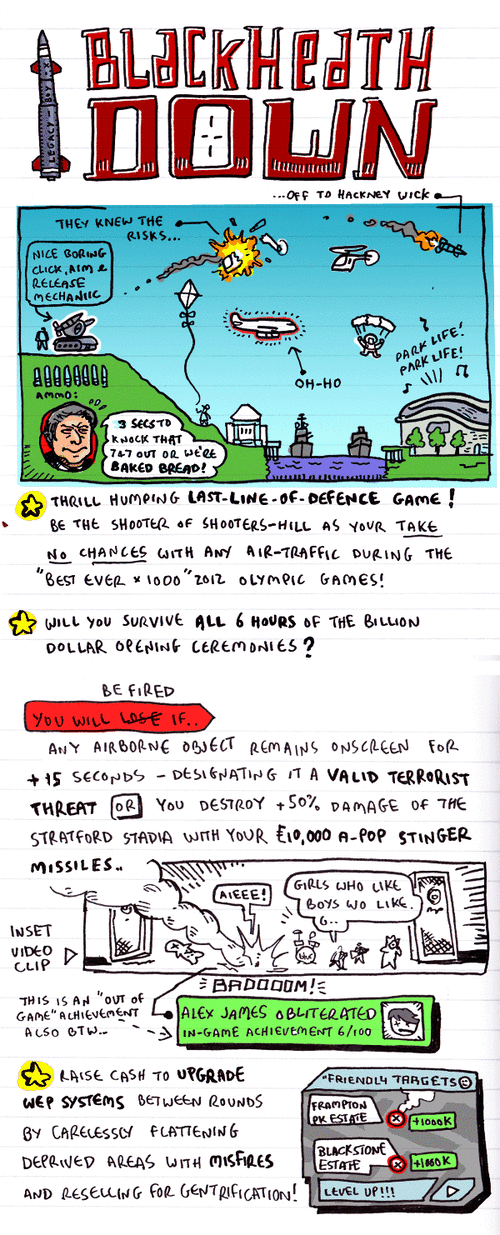 LEGACY-BOY-X
BLACKHEATH
DOWN
...OFF TO HACKNEY WICK
THEY KNEW THE
RISKS...
NICE BORING
CLICK, AIM &
RELEASE
MECHANIC
OH-HO
PARK LIFE!
PARK LIFE!
AMMO:
3 SECS TO
KNOCK THAT
747 OUT OR WE'RE
BAKED BREAD!
THRILL HUMPING LAST-LINE-OF-DEFENCE GAME!
BE THE SHOOTER OF SHOOTERS-HILL AS YOUR TAKE
NO CHANCES WITH ANY AIR-TRAFFIC DURING THE
"BEST EVER x 1000" 2012 OLYMPIC GAMES!
WILL YOU SURVIVE ALL 6 HOURS OF THE BILLION
DOLLAR OPENING CEREMONIES?
BE FIRED
YOU WILL LOSE IF..
ANY AIRBORNE OBJECT REMAINS ONSCREEN FOR
+15 SECONDS - DESIGNATING IT A VALID TERRORIST
THREAT OR YOU DESTROY +50% DAMAGE OF THE
STRATFORD STADIA WITH YOUR £10,000 A-POP STINGER
MISSILES..
AIEEE!
GIRLS WHO LIKE
BOYS WO LIKE.
G..
INSET
VIDEO
CLIP
BADOOOM!
THIS IS AN "OUT OF
GAME" ACHIEVEMENT
ALSO BTW...
ALEX JAMES OBLITERATED
IN-GAME ACHIEVEMENT 6/100
RAISE CASH TO UPGRADE
WEP SYSTEMS BETWEEN ROUNDS
BY CARELESSLY FLATTENING
DEPRIVED AREAS WITH MISFIRES
AND RESELLING FOR GENTRIFICATION!
"FRIENDLY TARGETS©
FRAMPTON
PK ESTATE
+1000K
BLACKSTONE
ESTATE
+1060K
LEVEL UP!!!